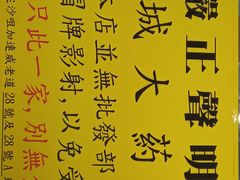 嚴正聲明
城大藥
本店並無批發部
冒牌影射,以免受
只此一家,別無
尖沙咀加連威老道28號及28號A